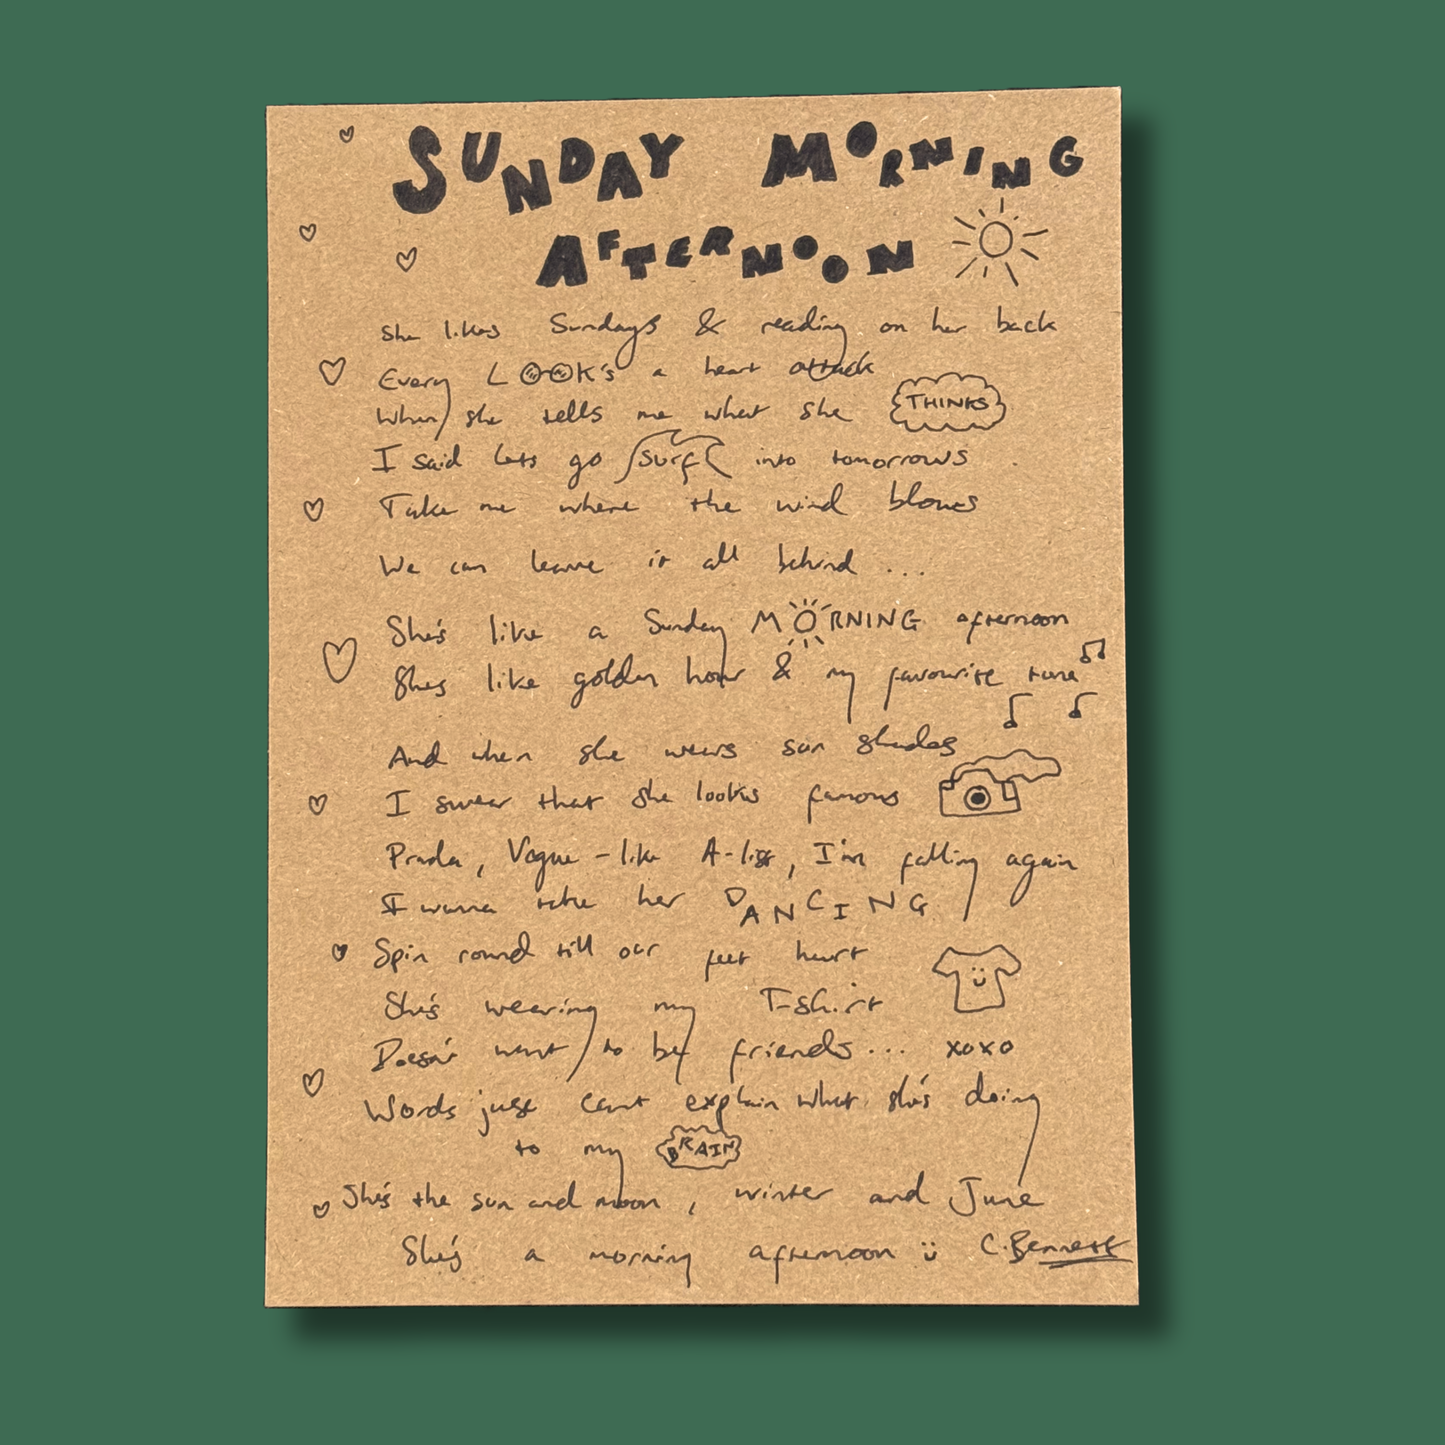 SUNDAY MORNING
AFTERNOON
She likes Sundays & reading on her back
Every LOOK's a heart attack
When she tells me what she THINKS
I said lets go surf into tomorrows
Take me where the wind blows
We can leave it all behind ...
She's like a Sunday MORNING afternoon
Shes like golden hour & my favourite tune
And when she wears sun shades
I swear that she looks famous
Prada, Vogue-like A-list, I'm falling again
I wanna take her DANCING
Spin round till our feet hurt
She's wearing my T-shirt
Doesn't want to be friends... xoxo
Words just can't explain what she's doing
to my BRAIN
She's the sun and moon, winter and June
She's a morning afternoon ü C.Bennett